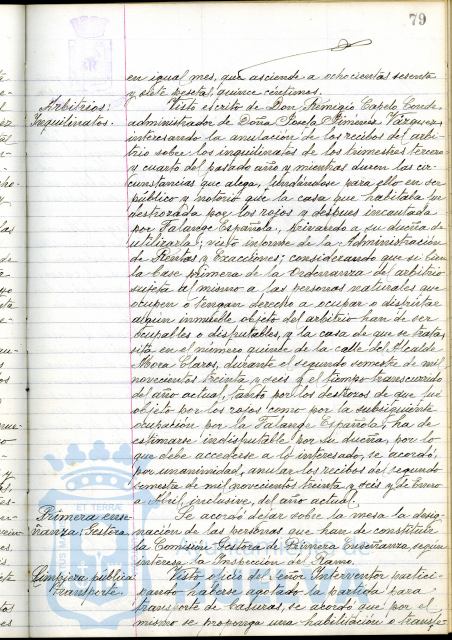 79
en igual mes, que asciende a ochocientas sesenta
y siete pesetas, quince céntimos.
Arbitrios:
Inquilinatos.
Visto escrito de Don Remigio Capelo Conde
administrador de Doña Josefa Jimenez Vazquez
interesando la anulación de los recibos del arbi-
trio sobre los inquilinatos de los trimestres tercero
y cuarto del pasado año y mientras duren las cir-
cunstancias que alega, fundándose para ello en ser
público y notorio que la casa que habitaba fue
destrozada por los rojos y despues incautada
por Falange Española, privando a su dueña de
utilizarla; visto informe de la Administración
de Rentas y Exacciones; considerando que si bien
la base primera de la Ordenanza del arbitrio
sujeta al mismo a las personas naturales que
ocupen o tengan derecho a ocupar o disfrutar
algún inmueble objeto del arbitrio han de ser
ocupables o disputables, y la casa de que se trata,
sita en el número quince de la calle del Alcalde
Mora Claros, durante el segundo semestre de mil
novecientos treinta y seis y el tiempo transcurrido
del año actual, tanto por los destrozos de que fué
objeto por los rojos como por la subsiguiente
ocupación por la Falange Española, ha de
estimarse indisputable por su dueña, por lo
que debe accederse a lo interesado, se acordó,
por unanimidad, anular los recibos del segundo
semestre de mil novecientos treinta y seis y de Enero
a Abril inclusive, del año actual.
Primera ense-
ñanza: Gestora
Se acordó dejar sobre la mesa la desig-
nación de las personas que han de constituir
la Comisión Gestora de Primera Enseñanza, según
interesa la Inspección del Ramo.
Limpieza pública
transporte.
Visto oficio del Señor Interventor partici-
pando haberse agotado la partida para
transporte de basuras, se acordó que por el
mismo se proponga una habilitación o transfe-